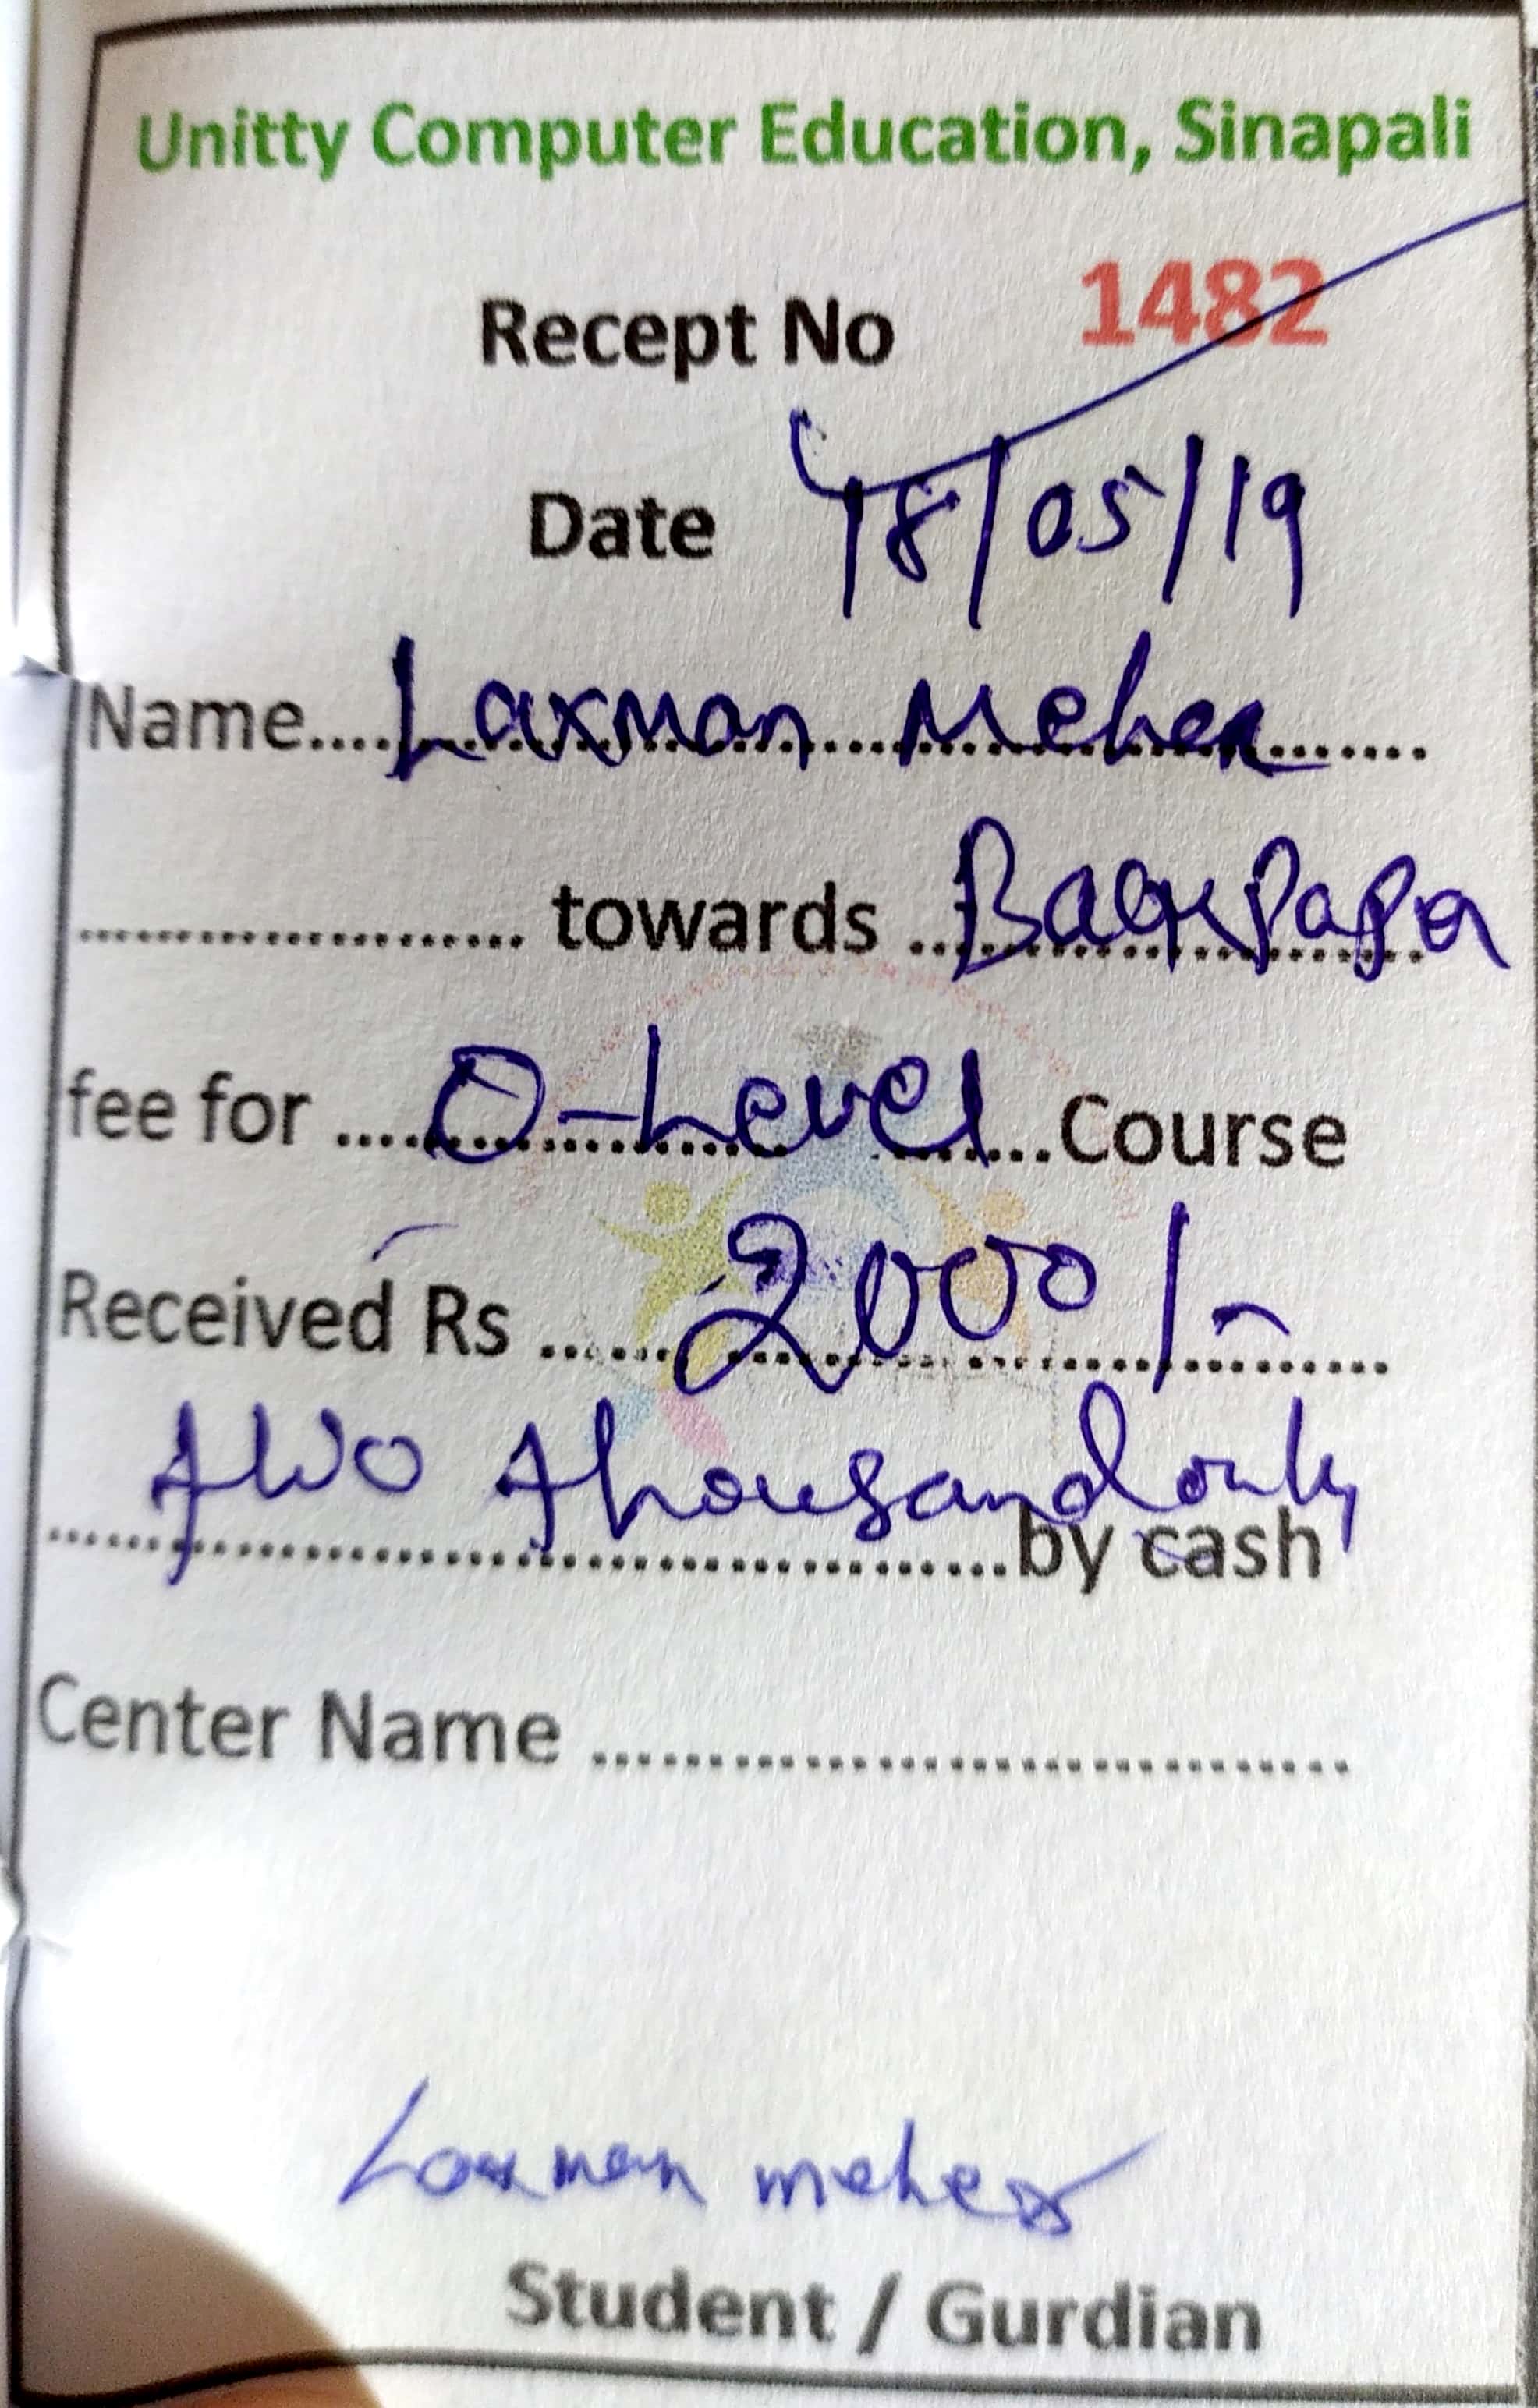 Unitty Computer Education, Sinapali
Recept No 1482
Date 18/05/19
Name.... Laxman Meher .......
...................... towards .. Back Paper
fee for .... O-Level ....Course
Received Rs ...... 2000/- ......
two thousand only
..........................................by cash
Center Name ................................
Laxman meher
Student / Gurdian